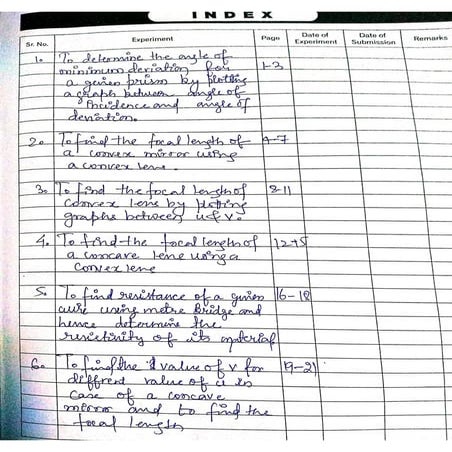 INDEX
Sr. No. Experiment Page Date of Experiment Date of Submission Remarks
1. To determine the angle of 1-3
minimum deviation for
a given prism by plotting
a graph between angle of
incidence and angle of
deviation.
2. To find the focal length of 4-7
a convex mirror using
a convex lens.
3. To find the focal length of 8-11
convex lens by plotting
graphs between u & v.
4. To find the focal length of 12-15
a concave lens using a
convex lens
5. To find resistance of a given 16-18
wire using metre Bridge and
hence determine the
resistivity of its material
6. To find the value of v for 19-21
different value of u in
case of a concave
mirror and to find the
focal length